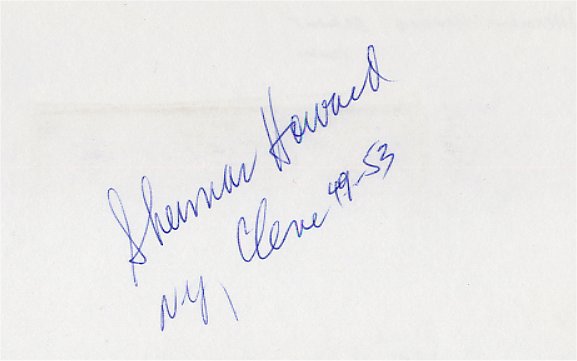 Sherman Howard
NY, Cleve 49-53